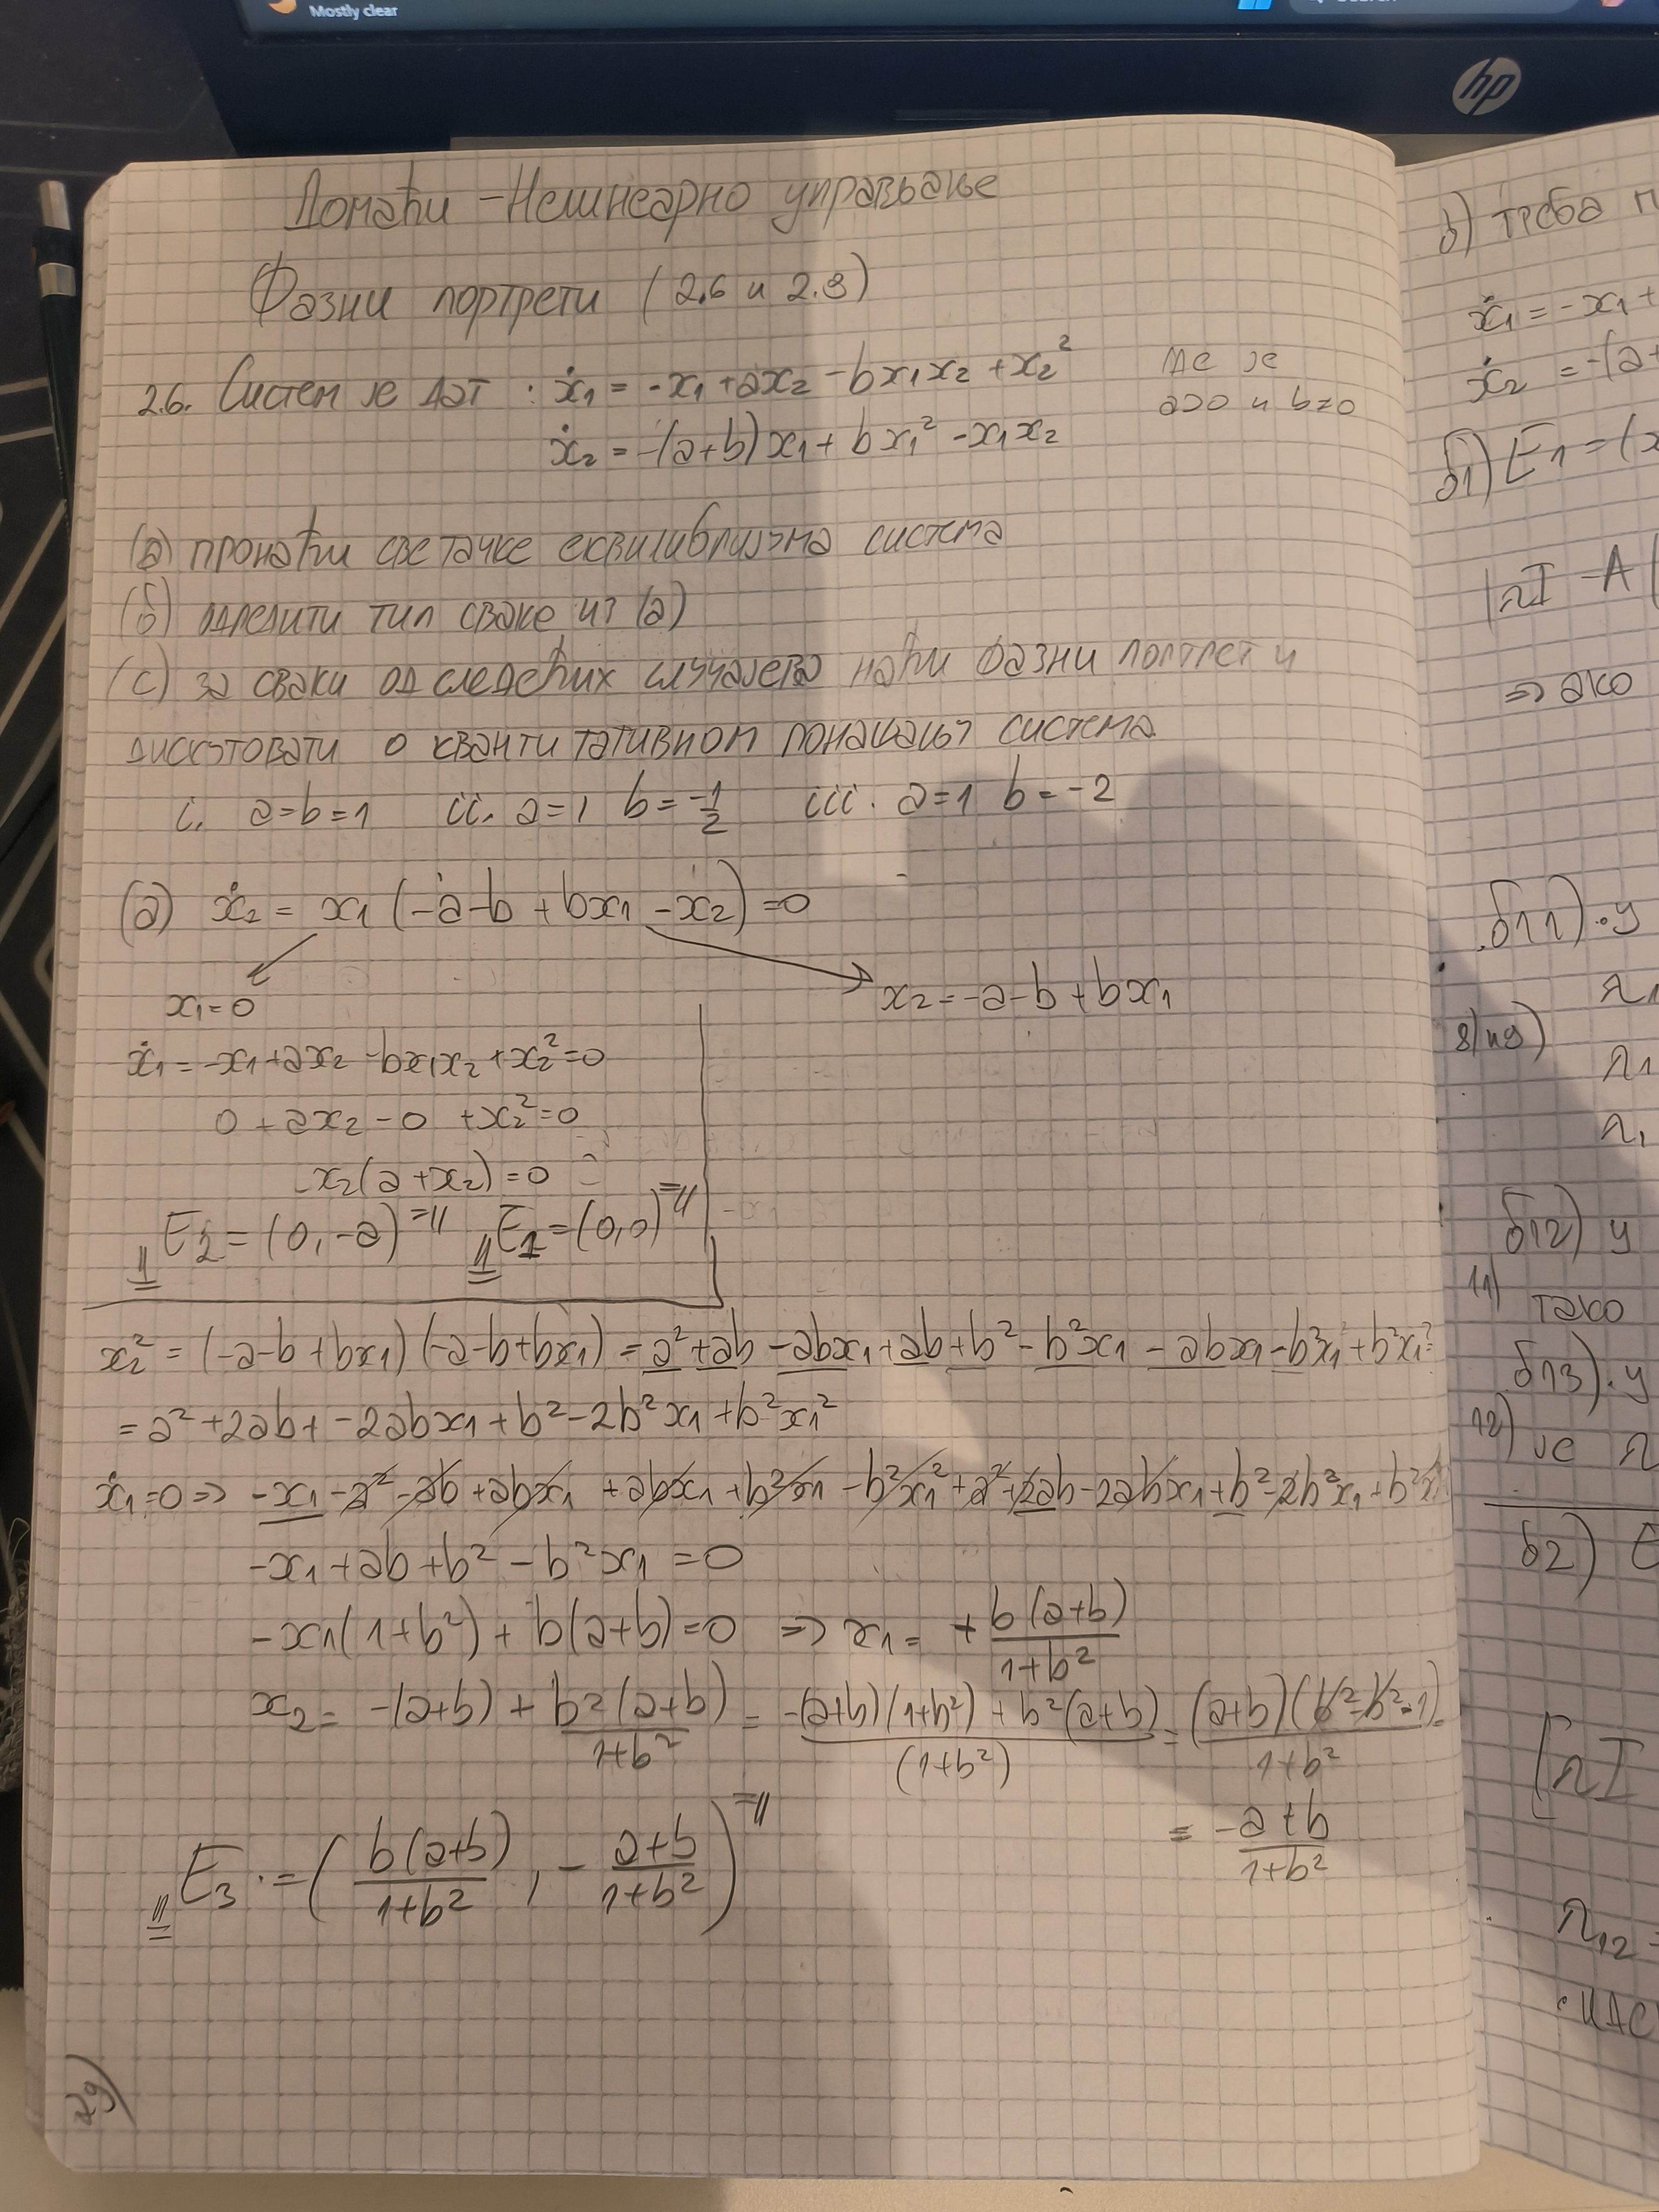 Mostly clear
hp
Домаћи - Нелинеарно управљање
Фазни портрети (2.6 и 2.8)
2.6. Систем је дат : ẋ₁ = -x₁ + ax₂ - bx₁x₂ + x₂² где је
ẋ₂ = -(a+b)x₁ + bx₁² - x₁x₂ a>0 и b≠0
(а) пронаћи све тачке еквилибријума система
(б) одредити тип сваке из (а)
(c) за сваки од следећих случајева наћи фазни портрет и
дискутовати о квантитативном понашању система
i. a=b=1 ii. a=1 b=-1/2 iii. a=1 b=-2
(а) ẋ₂ = x₁(-a-b+bx₁-x₂)=0
x₁=0 x₂=-a-b+bx₁
ẋ₁=-x₁+ax₂-bx₁x₂+x₂²=0
0+ax₂-0+x₂²=0
x₂(a+x₂)=0
E₂=(0,-a) E₁=(0,0)
x₂²=(-a-b+bx₁)(-a-b+bx₁)=a²+ab-abx₁+ab+b²-b²x₁-abx₁-b²x₁+b²x₁²
=a²+2ab+-2abx₁+b²-2b²x₁+b²x₁²
ẋ₁=0⇒ -x₁-a²-ab+abx₁+abx₁+b²x₁-b²x₁²+a²+2ab-2abx₁+b²-2b²x₁+b²
-x₁+ab+b²-b²x₁=0
-x₁(1+b²)+b(a+b)=0 ⇒ x₁=+b(a+b)/1+b²
x₂=-(a+b)+b²(a+b)/1+b²=-(a+b)(1+b²)+b²(a+b)/(1+b²)=(a+b)(b²-b²-1)/1+b²=
=-a+b/1+b²
E₃=(b(a+b)/1+b², -a+b/1+b²)
в) треба
ẋ₁=-x₁+
ẋ₂=-(a+
б1) E₁=(x
|λI-A|
⇒ ако
б11)·у
λ₁
8/ид)
λ₁
λ₁
б12) у
11) тако
б13)·у
12) је λ
б2) E
[λI
λ₁₂=